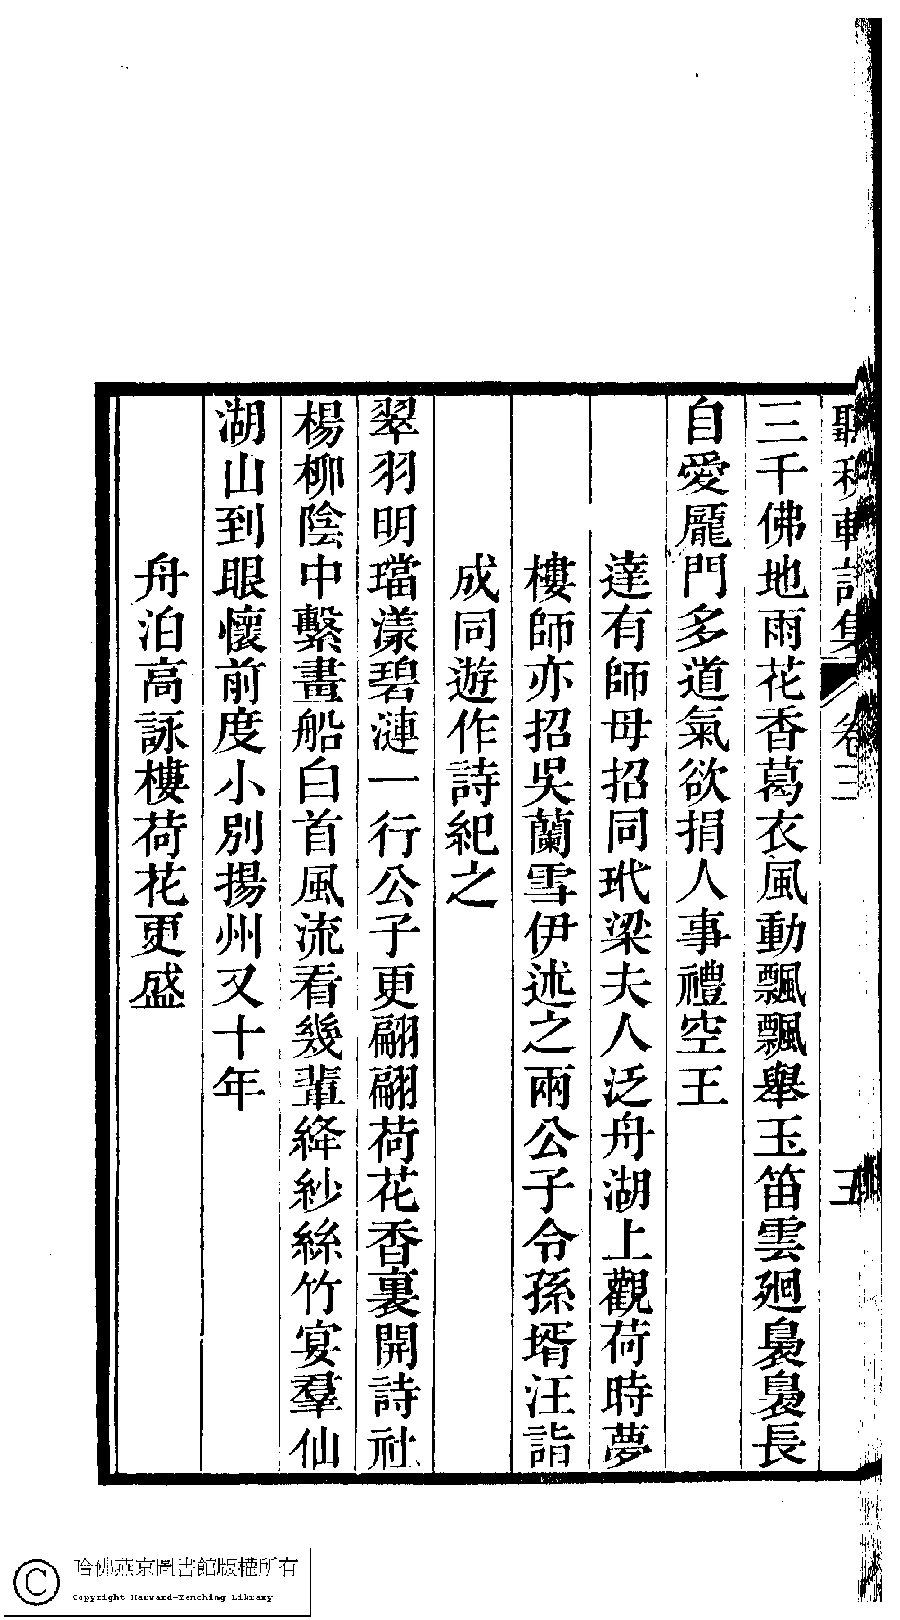 聽秋軒詩集 卷三 五
三千佛地雨花香葛衣風動飄飄舉玉笛雲廻裊裊長
自愛龐門多道氣欲捐人事禮空王
達有師母招同玳梁夫人泛舟湖上觀荷時夢
樓師亦招吳蘭雪伊述之兩公子令孫壻汪詣
成同遊作詩紀之
翠羽明璫漾碧漣一行公子更翩翩荷花香裏開詩社
楊柳陰中繫畫船白首風流看幾輩絳紗絲竹宴羣仙
湖山到眼懷前度小別揚州又十年
舟泊高詠樓荷花更盛
哈佛燕京圖書館版權所有
Copyright Harvard-Yenching Library